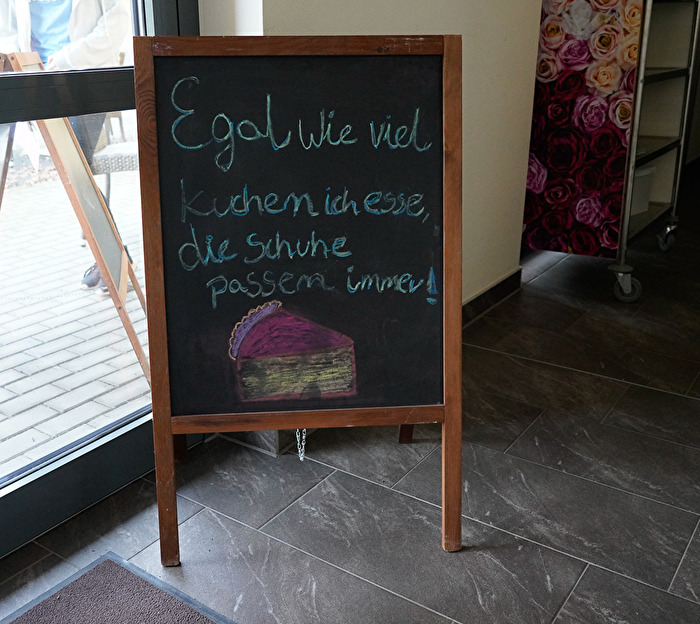 Egal wie viel
Kuchen ich esse,
die Schuhe
passen immer!